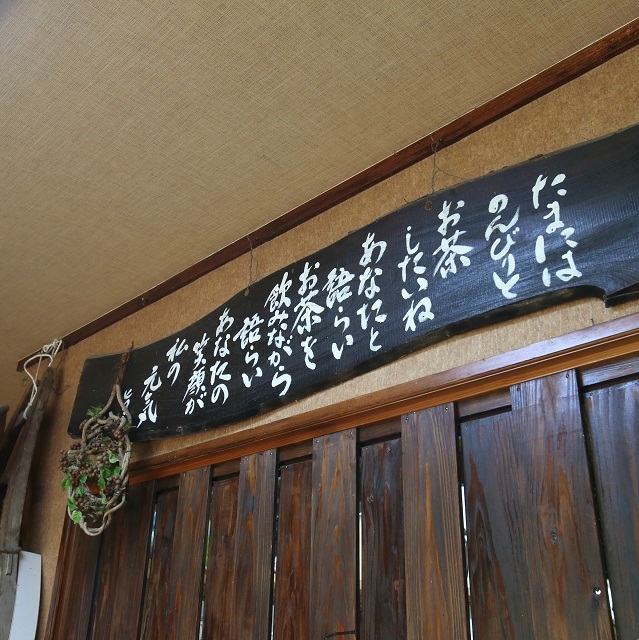 たまには
のんびりと
お茶
したいね
あなたと
語らい
お茶を
飲みながら
語らい
あなたの
笑顔が
私の
元気